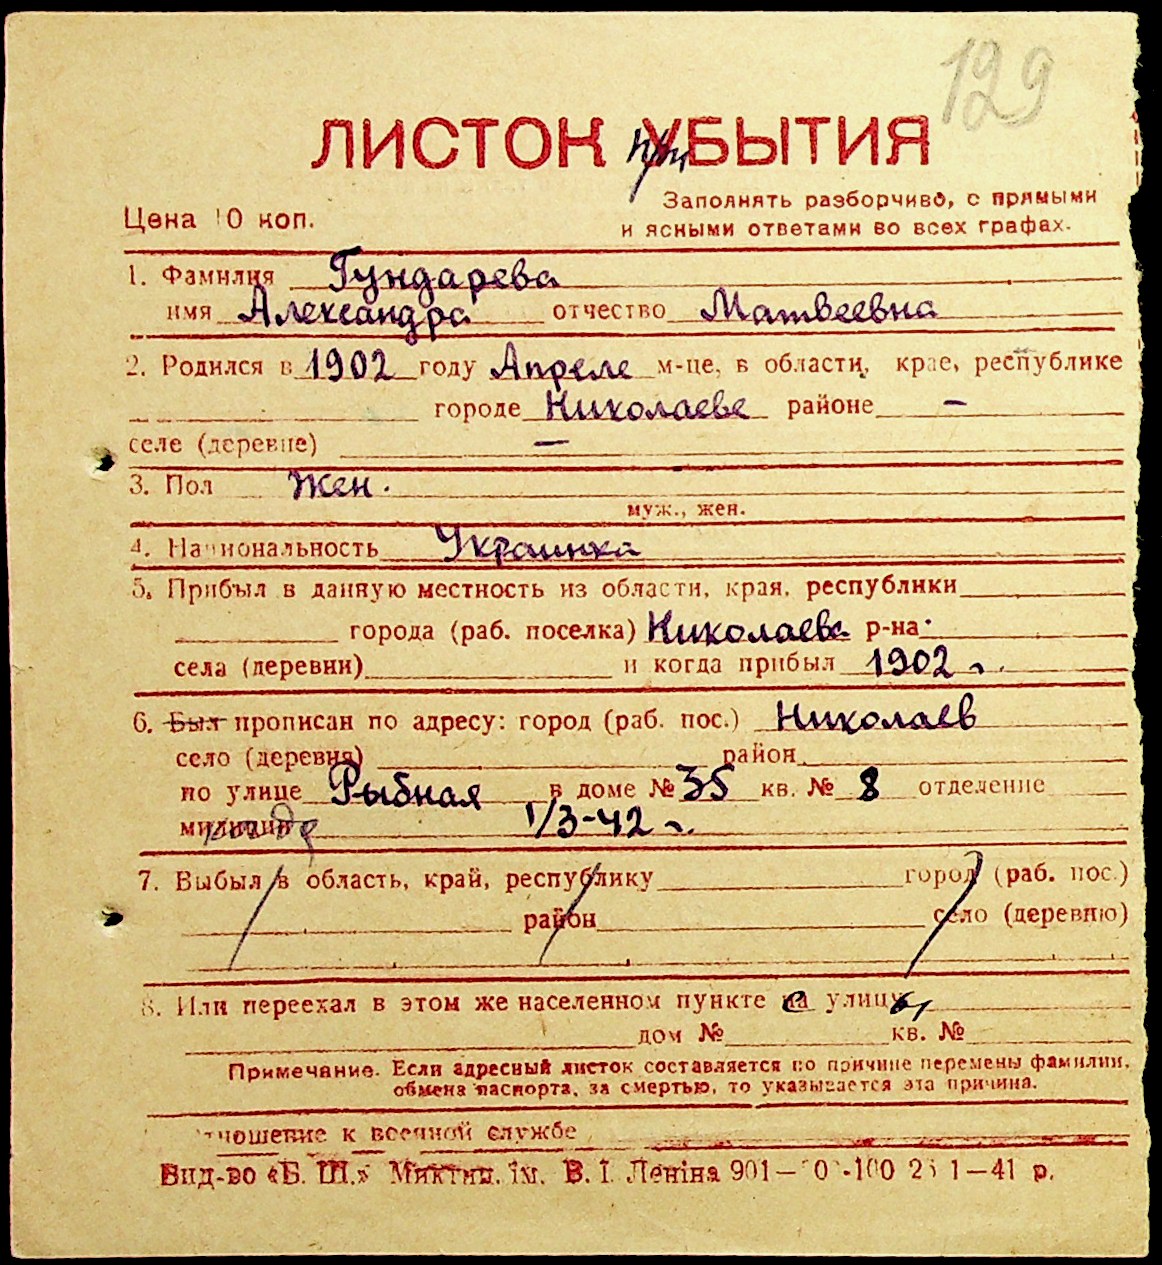 129
ЛИСТОК при УБЫТИЯ
Цена 10 коп.
Заполнять разборчиво, с прямыми
и ясными ответами во всех графах.
1. Фамилия Гундарева
имя Александра отчество Матвеевна
2. Родился в 1902 году Апреле м-це, в области, крае, республике
городе Николаеве районе —
селе (деревне) —
3. Пол Жен.
муж., жен.
4. Национальность Украинка
5. Прибыл в данную местность из области, края, республики
города (раб. поселка) Николаева р-на
села (деревни) и когда прибыл 1902 г.
6. Был прописан по адресу: город (раб. пос.) Николаев
село (деревня) район
по улице Рыбная в доме № 35 кв. № 8 отделение
милиции 1/3-42 г.
7. Выбыл в область, край, республику город (раб. пос.)
район село (деревню)
8. Или переехал в этом же населенном пункте на с улицу ы
дом № кв. №
Примечание. Если адресный листок составляется по причине перемены фамилии,
обмена паспорта, за смертью, то указывается эта причина.
тношение к военной службе
Вид-во «Б. Ш.» Миктип. ім. В. І. Леніна 901— 1—41 р.